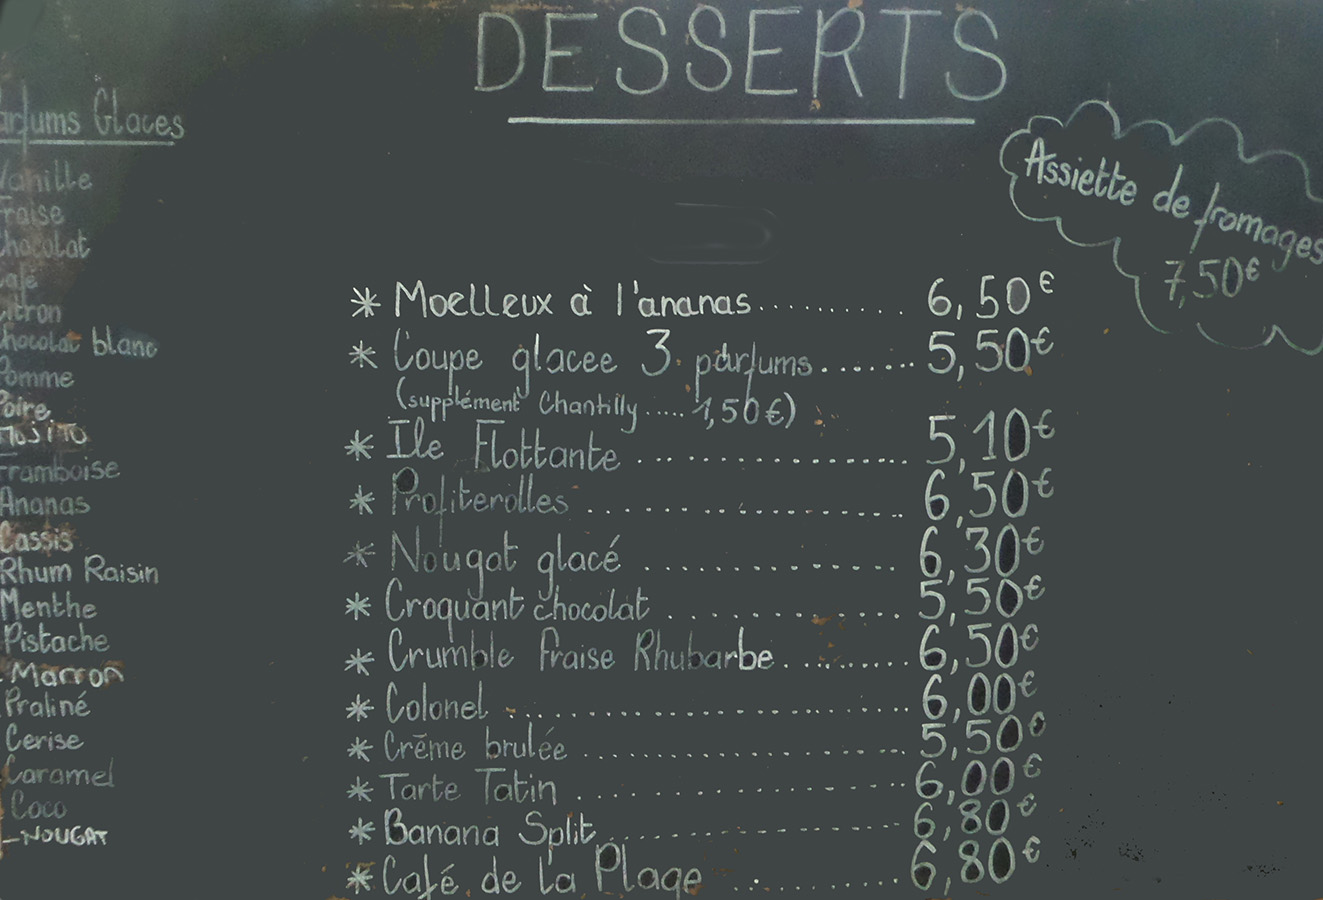 DESSERTS
arfums Glaces
Vanille
Fraise
Chocolat
Café
Citron
Chocolat blanc
Pomme
Poire
MOJITO
Framboise
Ananas
Cassis
Rhum Raisin
Menthe
Pistache
Marron
Praliné
Cerise
Caramel
Coco
- NOUGAT
Assiette de fromages
7,50€
* Moelleux à l'ananas.......... 6,50€
* Coupe glacee 3 parfums....... 5,50€
(supplément Chantilly..... 1,50€)
* Ile Flottante ................. 5,10€
* Profiterolles ................. 6,50€
* Nougat glacé ............... 6,30€
* Croquant chocolat ............... 5,50€
* Crumble Fraise Rhubarbe.......... 6,50€
* Colonel ......................... 6,00€
* Crême brulée .................... 5,50€
* Tarte Tatin ..................... 6,00€
* Banana Split.................... 6,80€
* Café de la Plage ............ 6,80€